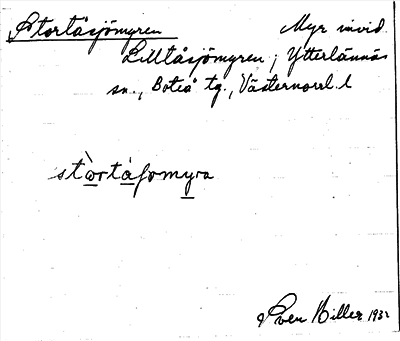 Stortåsjömyren Myr invid
Lilltåsjömyren, Ytterlännäs
sn., Boteå tg., Västernorrl. l
stòrtåʃomyra
Sven Hiller 1932